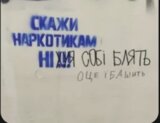 СКАЖИ
НАРКОТИКАМ
НІХУЯ СОБІ БЛЯТЬ
ОЦЕ ЇБАШИТЬ